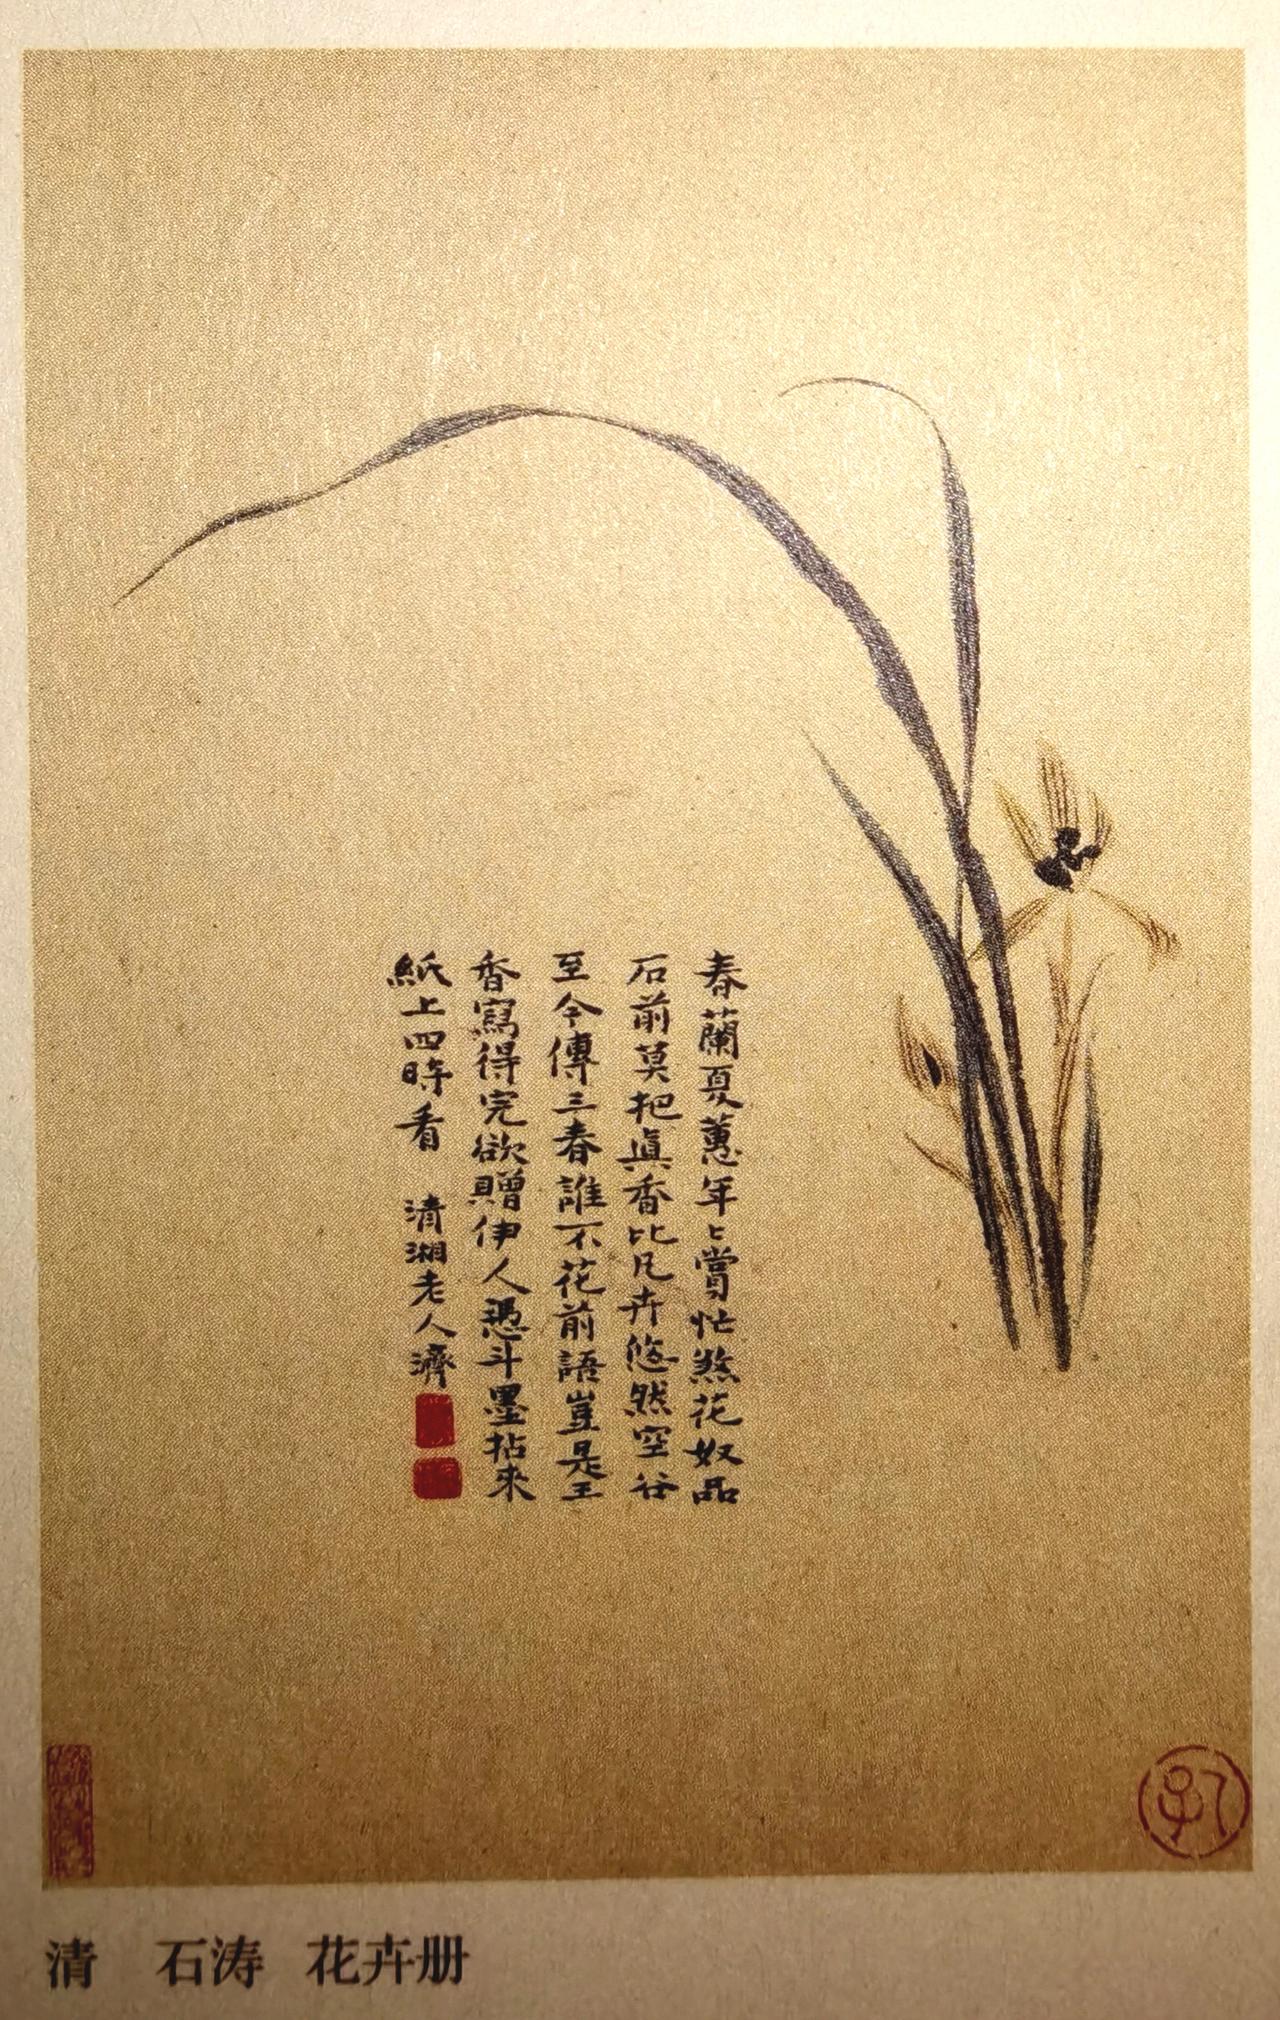 春蘭夏蕙年〻賞忙煞花奴品
石前莫把真香比凡卉悠然空谷
至今傳三春誰不花前語豈是王
香寫得完欲贈伊人憑斗墨拈來
紙上四時看 清湘老人濟
清 石涛 花卉册